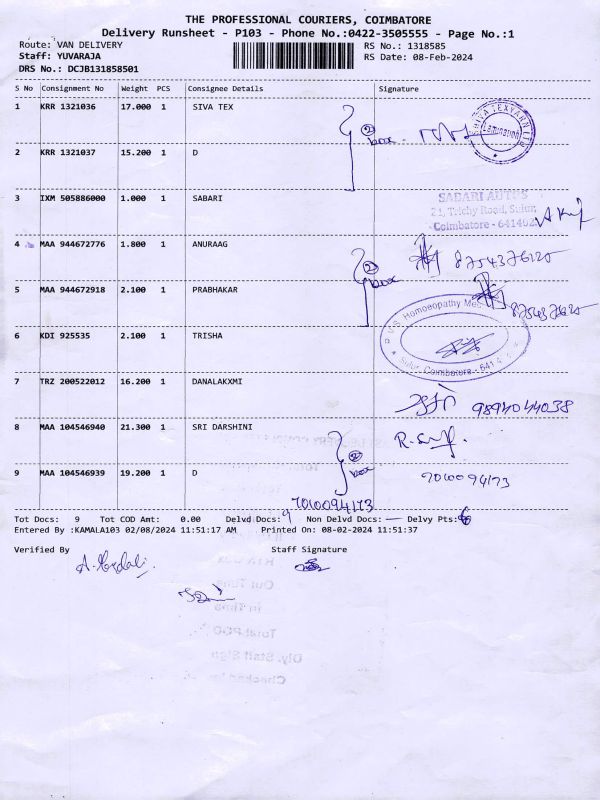 THE PROFESSIONAL COURIERS, COIMBATORE
Delivery Runsheet - P103 - Phone No.:0422-3505555 - Page No.:1
Route: VAN DELIVERY RS No.: 1318585
Staff: YUVARAJA RS Date: 08-Feb-2024
DRS No.: DCJB131858501
S No Consignment No Weight PCS Consignee Details Signature
1 KRR 1321036 17.000 1 SIVA TEX
2 box
2 KRR 1321037 15.200 1 D
3 IXM 505886000 1.000 1 SABARI
SABARI AUTO'S
21, Trichy Road, Sulur,
Coimbatore - 641402
4 MAA 944672776 1.800 1 ANURAAG 8754376125
2 box
5 MAA 944672918 2.100 1 PRABHAKAR 8754376125
Homoeopathy
Sulur, Coimbatore - 641
6 KDI 925535 2.100 1 TRISHA
7 TRZ 200522012 16.200 1 DANALAKXMI
8 MAA 104546940 21.300 1 SRI DARSHINI
2 box
9 MAA 104546939 19.200 1 D 7010094173
7010094173
Tot Docs: 9 Tot COD Amt: 0.00 Delvd Docs: 9 Non Delvd Docs: — Delvy Pts: 6
Entered By :KAMALA103 02/08/2024 11:51:17 AM Printed On: 08-02-2024 11:51:37
Verified By Staff Signature